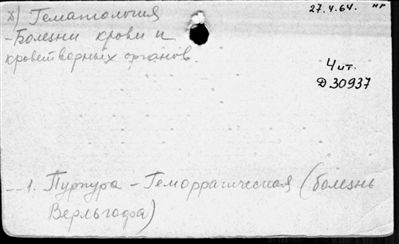 б) Гематология
27.4.64. нг
- Болезни крови и
кроветворных органов.
4 ит.
Д 30937
1. Пурпура - Геморрагическая (болезнь
Верльгофа)